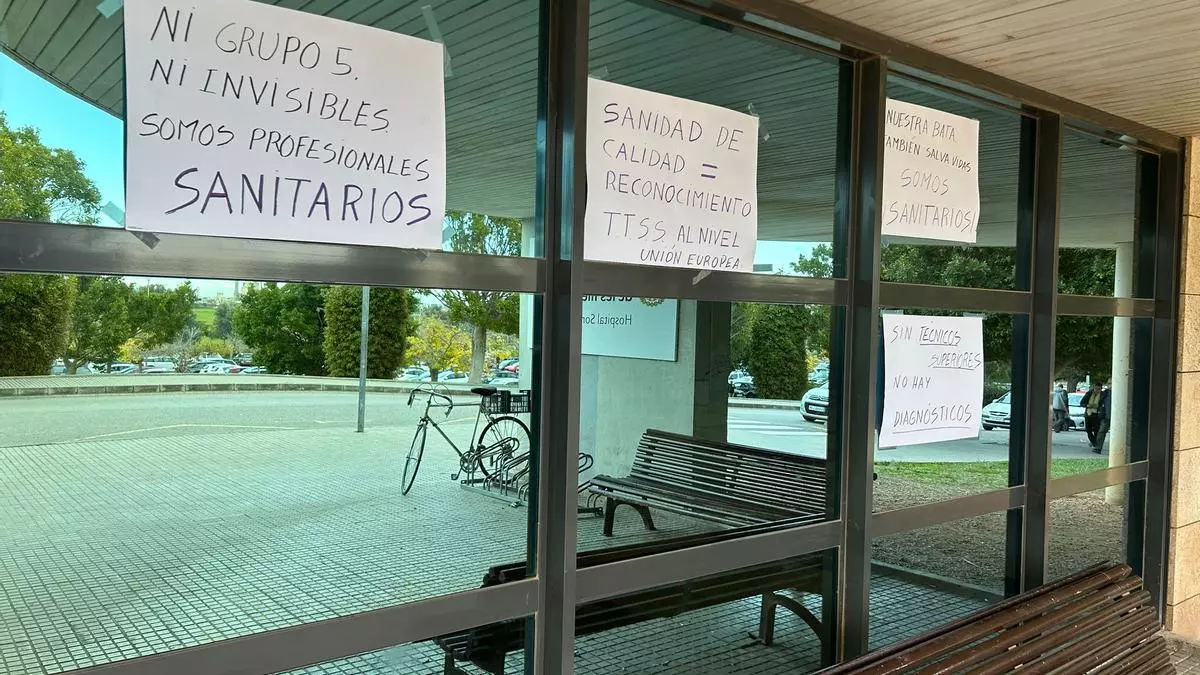 NI GRUPO 5.
NI INVISIBLES.
SOMOS PROFESIONALES
SANITARIOS
SANIDAD DE
CALIDAD =
RECONOCIMIENTO
T.T.S.S. AL NIVEL
UNIÓN EUROPEA
NUESTRA BATA
TAMBIÉN SALVA VIDAS
SOMOS
SANITARIOS!
SIN TÉCNICOS
SUPERIORES
NO HAY
DIAGNÓSTICOS
Hospital Son